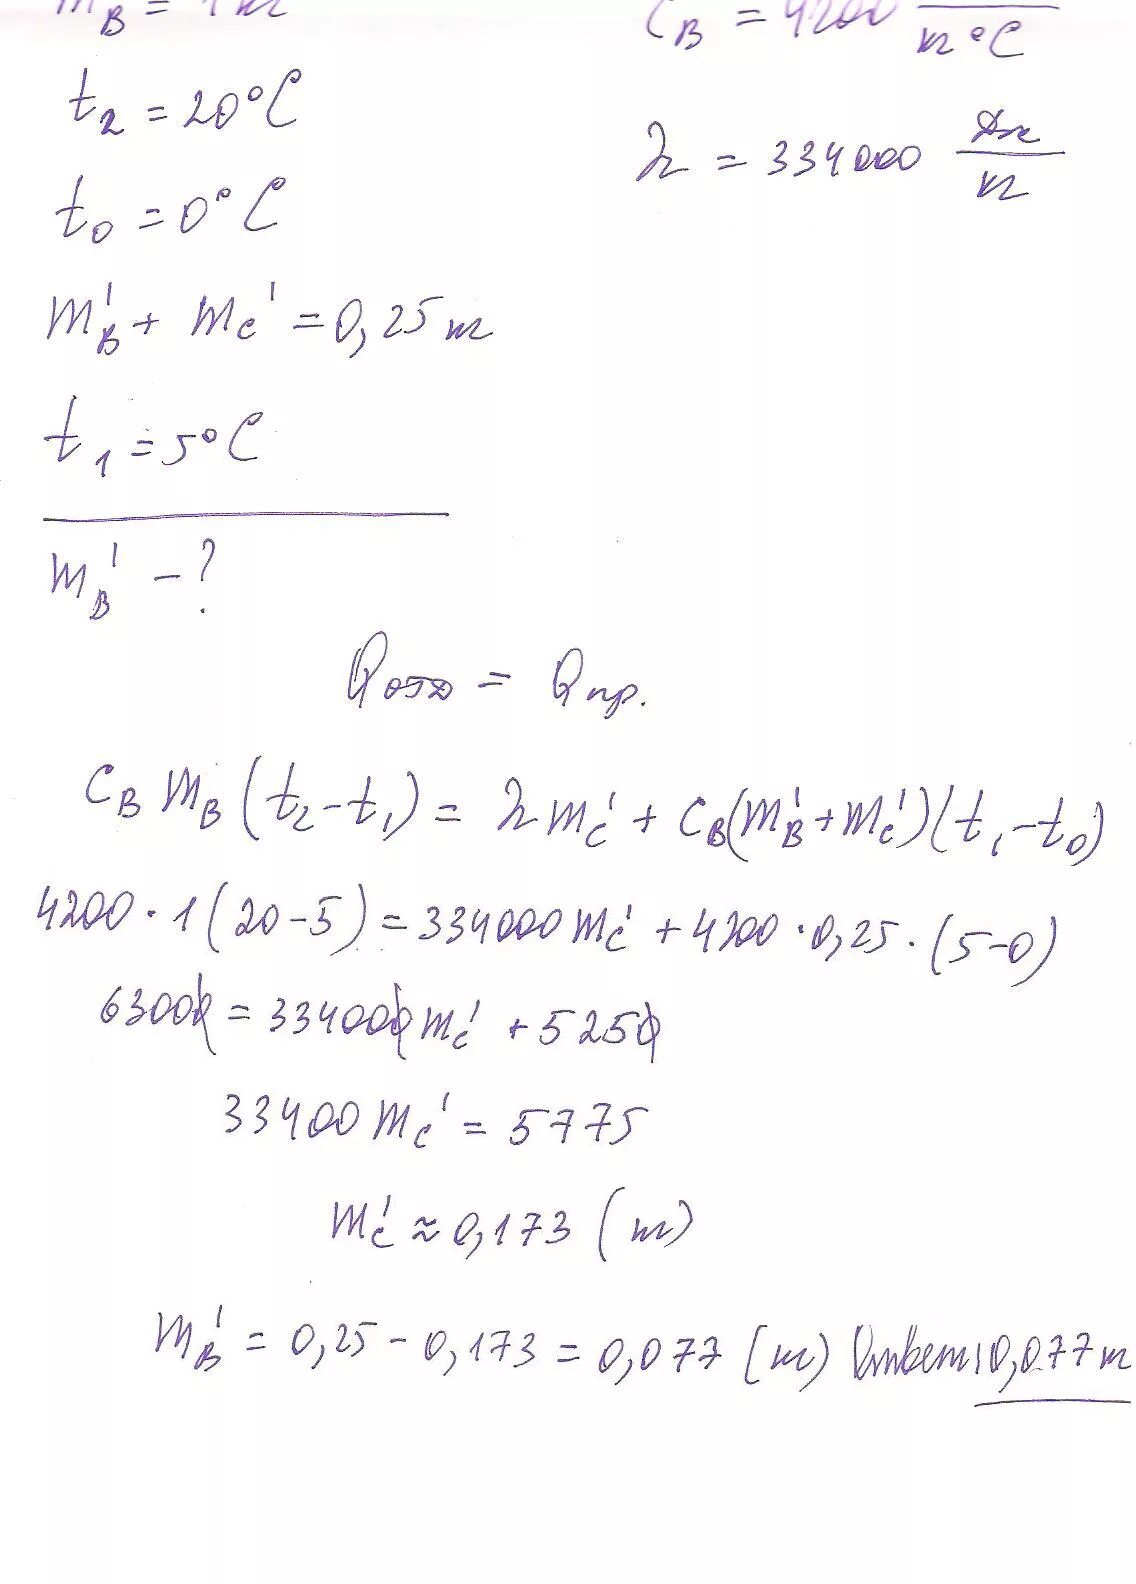 m_в = 1 т
c_в = 4200 / кг°C
t₂ = 20°C
λ = 334000 Дж/кг
t₀ = 0°C
m'_в + m_с' = 0,25 т
t₁ = 5°C
m'_в - ?
Qотд = Qпр.
c_в m_в (t₂ - t₁) = λ m'_с + c_в (m'_в + m'_с)(t₁ - t₀)
4200 · 1 (20 - 5) = 334000 m'_с + 4200 · 0,25 · (5 - 0)
63000 = 334000 m'_с + 5250
33400 m_с' = 5775
m'_с ≈ 0,173 (т)
m'_в = 0,25 - 0,173 = 0,077 (т) Ответ: 0,077 т